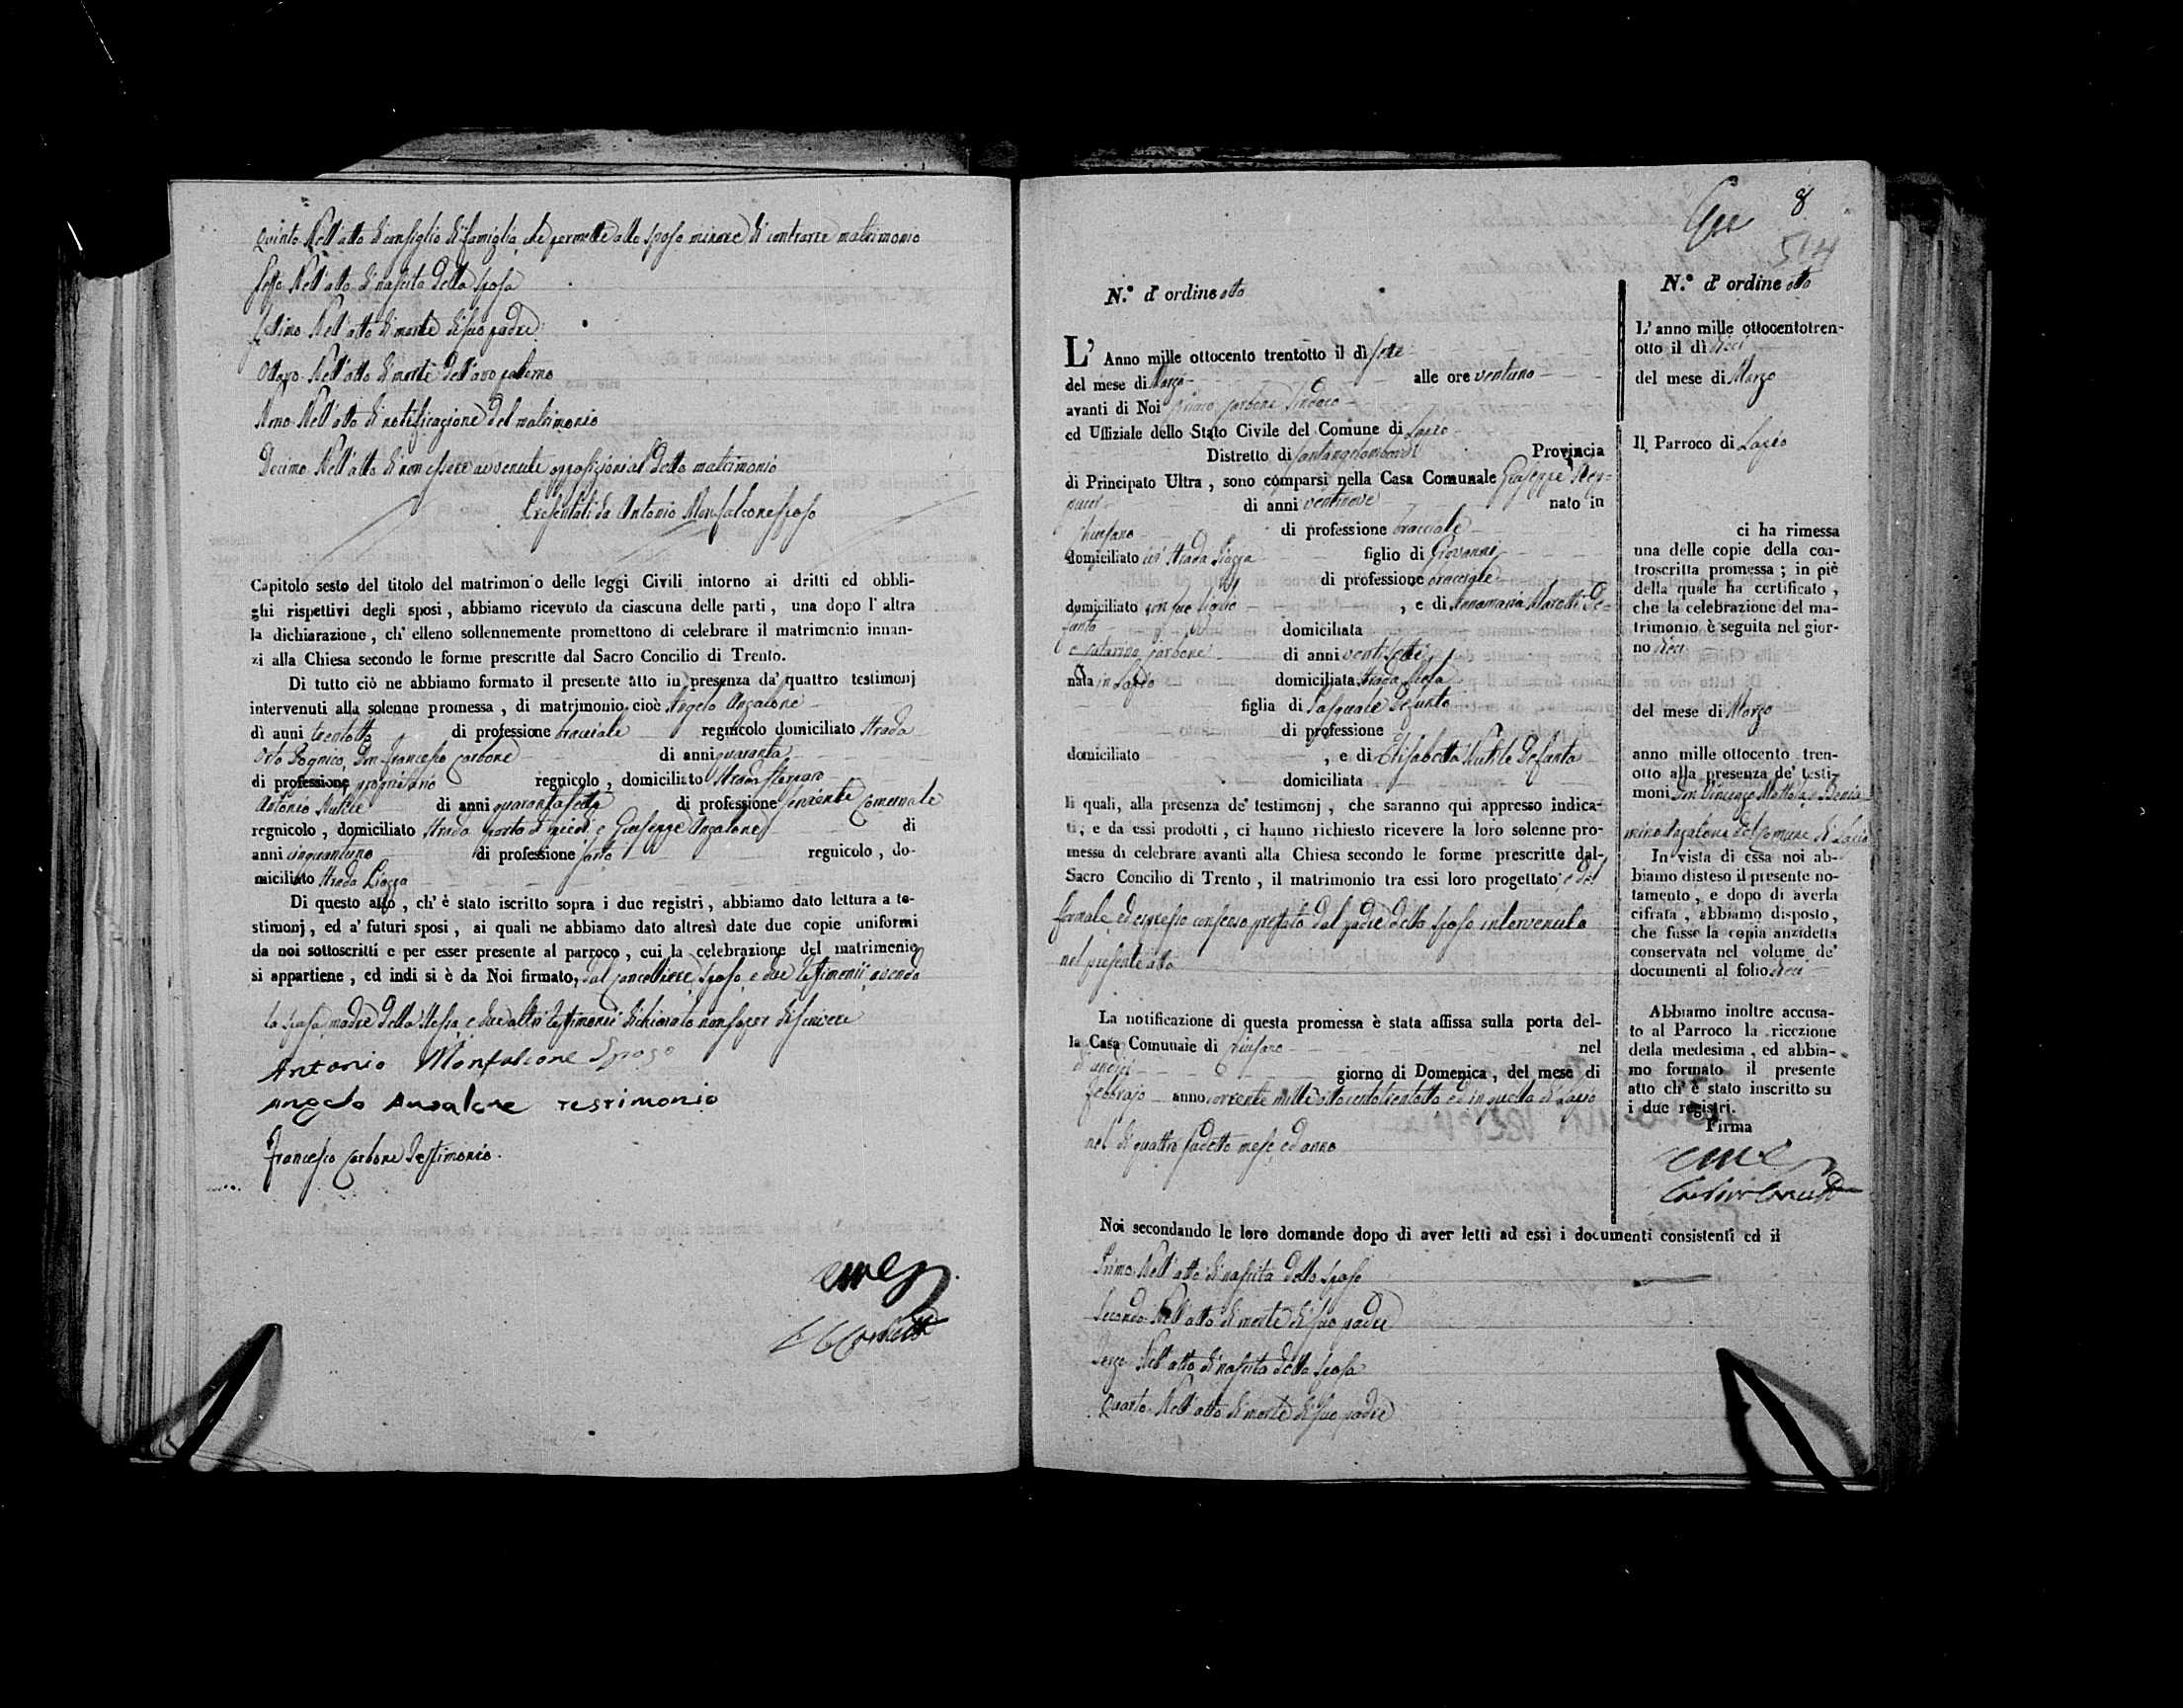 Quinto Nell'atto di consiglio di famiglia, che permette allo sposo minore di contrarre matrimonio
Sesto Nell'atto di nascita della sposa
Settimo Nell'atto di morte di suo padre
Ottavo Nell'atto di morte dell'avo paterno
Nono Nell'atto di notificazione del matrimonio
Decimo Nell'atto di non essere avvenute opposizioni al detto matrimonio
Presentati da Antonio Monfalcone sposo
Capitolo sesto del titolo del matrimonio delle leggi Civili intorno ai dritti ed obbli-
ghi rispettivi degli sposi, abbiamo ricevuto da ciascuna delle parti, una dopo l'altra
la dichiarazione, ch'elleno sollennemente promettono di celebrare il matrimonio innan-
zi alla Chiesa secondo le forme prescritte dal Sacro Concilio di Trento.
Di tutto ciò ne abbiamo formato il presente atto in presenza da' quattro testimonj
intervenuti alla solenne promessa, di matrimonio cioè Angelo Anzalone
di anni trentotto di professione bracciale regnicolo domiciliato Strada
Orto Don Francesco Carbone di anni quaranta
di professione proprietario regnicolo, domiciliato Strada
Antonio di anni quarantasette di professione serviente Comunale
regnicolo, domiciliato Strada porta di piedi e Giuseppe Anzalone di
anni cinquantuno di professione sarto regnicolo, do-
miciliato Strada Piazza
Di questo atto, ch'è stato iscritto sopra i due registri, abbiamo dato lettura a te-
stimonj, ed a' futuri sposi, ai quali ne abbiamo dato altresì date due copie uniformi
da noi sottoscritti e per esser presente al parroco, cui la celebrazione del matrimonio
si appartiene, ed indi si è da Noi firmato, dal cancelliere, sposo, e due testimonii avendo
la sposa, madre della stessa, e due altri testimonii dichiarato non saper di scrivere
Antonio Monfalcone Sposo
Angelo Anzalone testimonio
Francesco Carbone Testimonio
8
514
N.º d'ordine otto
L'Anno mille ottocento trentotto il dì sette
del mese di Marzo alle ore ventuno
avanti di Noi Carbone Sindaco
ed Uffiziale dello Stato Civile del Comune di Lacio
Distretto di Santangelolombardi Provincia
di Principato Ultra, sono comparsi nella Casa Comunale Giuseppe
di anni ventinove nato in
Chiusano di professione bracciale
domiciliato ivi Strada Piazza figlio di Giovanni
di professione bracciale
domiciliato con suo figlio, e di Annamaria De-
funta domiciliata
e Catarina Carbone di anni ventisette
nata in Lacio domiciliata Strada
figlia di Pasquale Defunto
di professione
domiciliato, e di Elisabetta Defunta
domiciliata
li quali, alla presenza de' testimonj, che saranno qui appresso indica-
ti, e da essi prodotti, ci hanno richiesto ricevere la loro solenne pro-
messa di celebrare avanti alla Chiesa secondo le forme prescritte dal
Sacro Concilio di Trento, il matrimonio tra essi loro progettato e del
formale, ed espresso consenso prestato dal padre dello sposo intervenuto
nel presente atto
La notificazione di questa promessa è stata affissa sulla porta del-
la Casa Comunale di Chiusano nel
dì undici giorno di Domenica, del mese di
Febbrajo anno corrente mille ottocentotrentotto ed in quella di Lacio
nel dì quattro sudetto mese ed anno
N.º d'ordine otto
L'anno mille ottocentotren-
otto il dì dieci
del mese di Marzo
Il Parroco di Lacio
ci ha rimessa
una delle copie della con-
troscritta promessa; in piè
della quale ha certificato,
che la celebrazione del ma-
trimonio è seguita nel gior-
no dieci
del mese di Marzo
anno mille ottocento tren-
otto alla presenza de' testi-
moni Don Vincenzo Mottola, e Benia-
mino Anzalone del Comune di Lacio
In vista di essa noi ab-
biamo disteso il presente no-
tamento, e dopo di averla
cifrata, abbiamo disposto,
che fusse la copia anzidetta
conservata nel volume de'
documenti al folio dieci
Abbiamo inoltre accusa-
to al Parroco la ricezione
della medesima, ed abbia-
mo formato il presente
atto ch'è stato inscritto su
i due registri.
Firma
Noi secondando le loro domande dopo di aver letti ad essi i documenti consistenti ed il
Primo Nell'atto di nascita dello sposo
Secondo Nell'atto di morte di suo padre
Terzo Nell'atto di nascita della sposa
Quarto Nell'atto di morte di suo padre